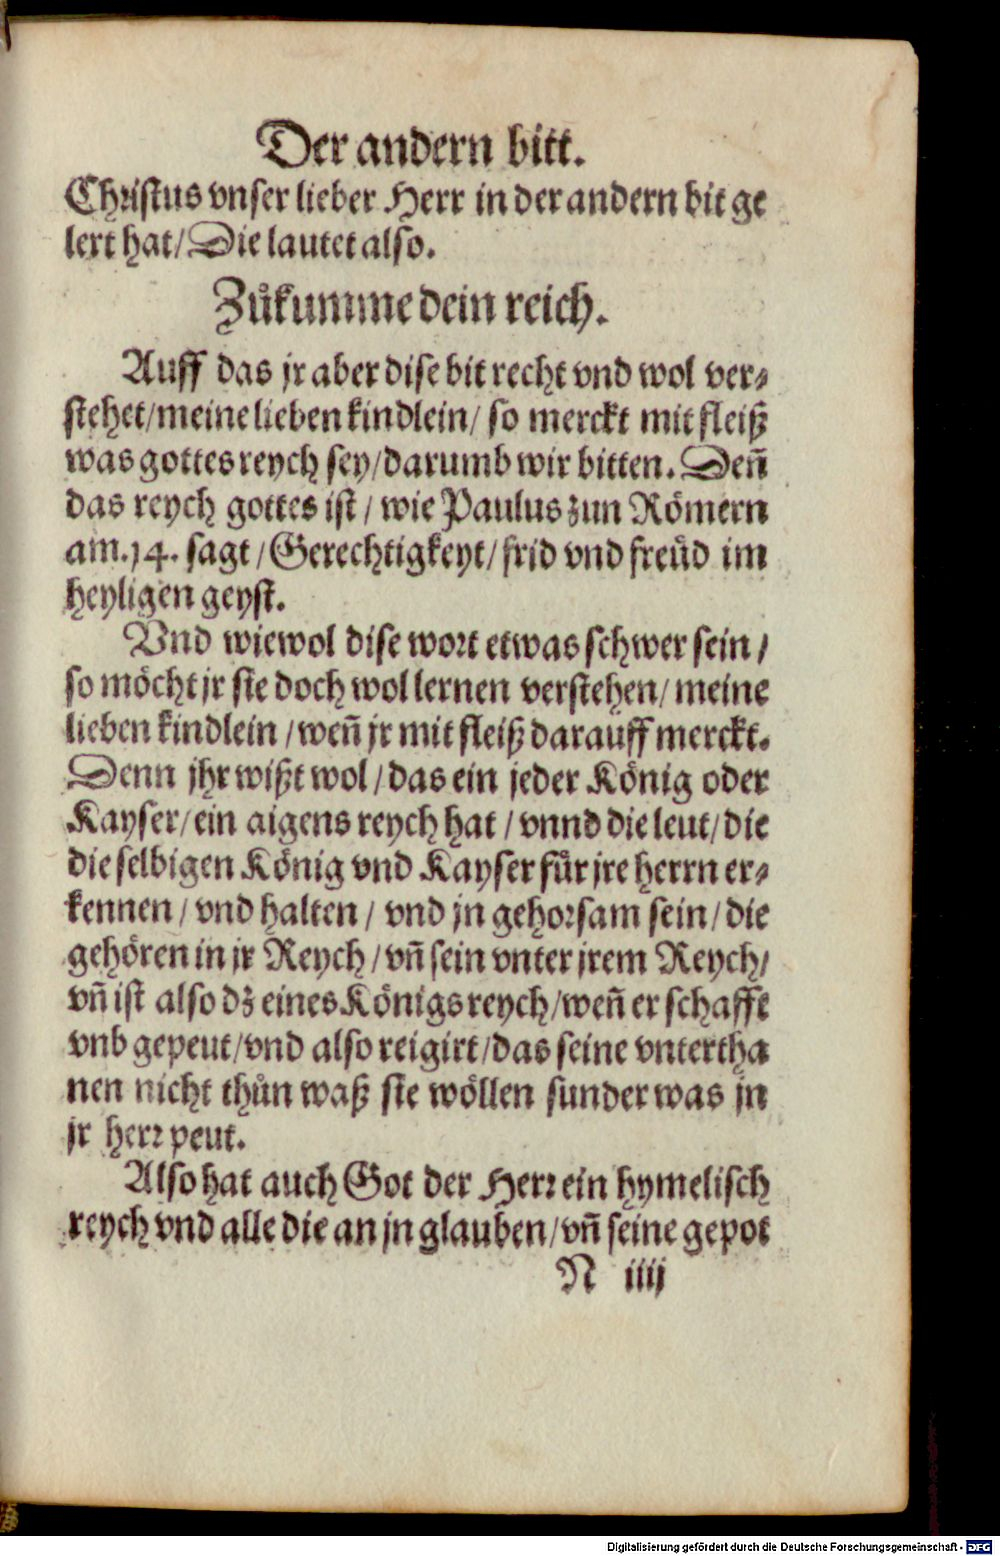 Der andern bitt.
Christus vnser lieber Herr in der andern bit ge
lert hat/ Die lautet also.
Zůkumme dein reich.
Auff das jr aber dise bit recht vnd wol ver⸗
stehet/ meine lieben kindlein/ so merckt mit fleiß
was gottes reych sey/ darumb wir bitten. Deñ
das reych gottes ist/ wie Paulus zun Römern
am. 14. sagt/ Gerechtigkeyt/ frid vnd freůd im
heyligen geyst.
Vnd wiewol dise wort etwas schwer sein/
so möcht jr sie doch wol lernen verstehen/ meine
lieben kindlein/ weñ jr mit fleiß darauff merckt.
Denn jhr wißt wol/ das ein jeder König oder
Kayser/ ein aigens reych hat/ vnnd die leut/ die
die selbigen König vnd Kayser für jre herrn er⸗
kennen/ vnd halten/ vnd jn gehorsam sein/ die
gehören in jr Reych/ vñ sein vnter jrem Reych/
vñ ist also dz eines Königs reych/ weñ er schafft
vnb gepeut/ vnd also reigirt/ das seine vntertha
nen nicht thůn waß sie wöllen sunder was jn
jr herr peut.
Also hat auch Got der Herr ein hymelisch
reych vnd alle die an jn glauben/ vñ seine gepot
N iiij
Digitalisierung gefördert durch die Deutsche Forschungsgemeinschaft - DFG